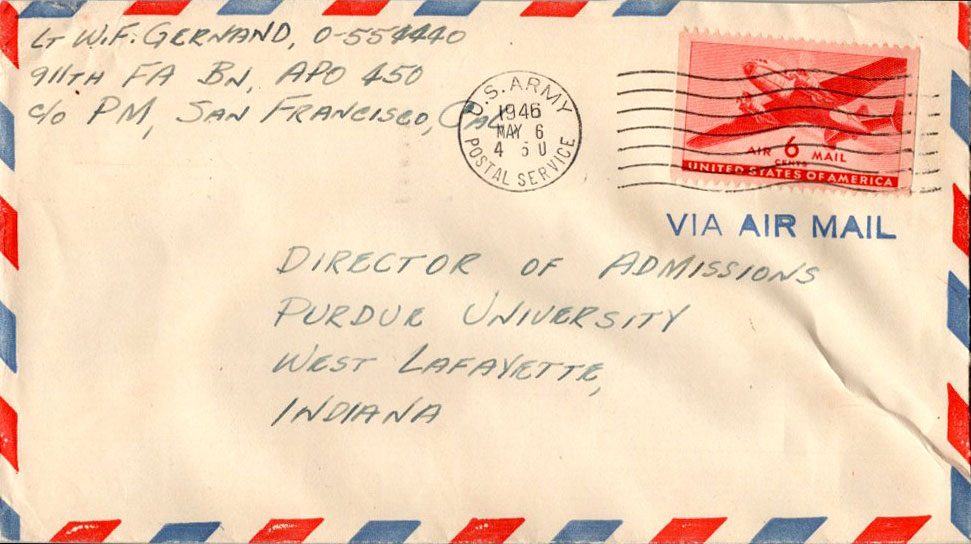 LT W.F. GERNAND, O-554440
911TH FA BN, APO 450
c/o PM, SAN FRANCISCO, CAL
U.S. ARMY
1946
MAY 6
4 50
POSTAL SERVICE
AIR 6 MAIL
CENTS
UNITED STATES OF AMERICA
VIA AIR MAIL
DIRECTOR OF ADMISSIONS
PURDUE UNIVERSITY
WEST LAFAYETTE,
INDIANA